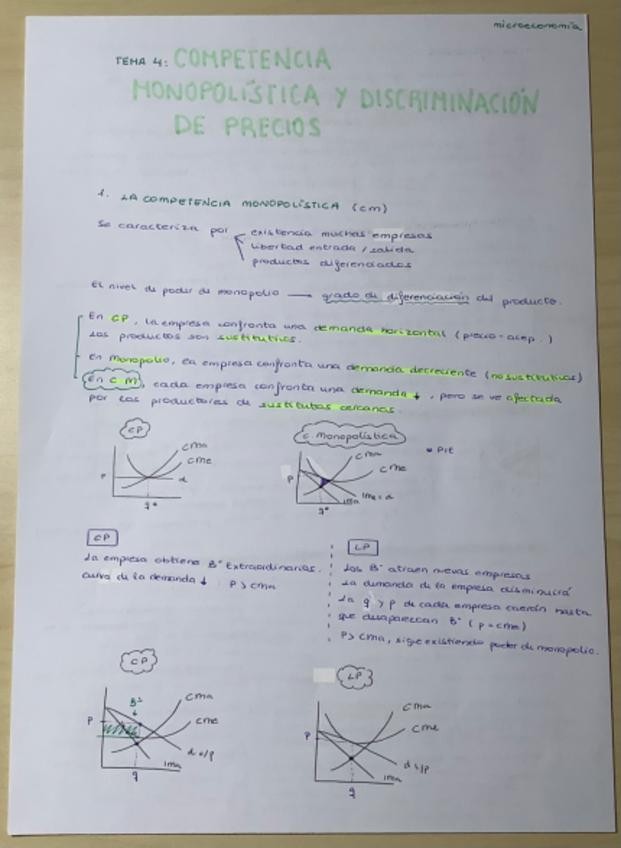 microeconomía
TEMA 4: COMPETENCIA
MONOPOLÍSTICA Y DISCRIMINACIÓN
DE PRECIOS
1. LA COMPETENCIA MONOPOLÍSTICA (cm)
Se caracteriza por existencia muchas empresas
libertad entrada / salida
productos diferenciados
El nivel de poder de monopolio → grado de diferenciación del producto.
En CP, la empresa confronta una demanda horizontal (precio-acep.)
Los productos son sustitutivos.
En monopolio, la empresa confronta una demanda decreciente (no sustitutivos)
En C M, cada empresa confronta una demanda ↓, pero se ve afectada
por los productores de sustitutos cercanos.
CP
cma
cme
P
d
q*
C. monopolística
cma
cme
P
Ime = d
Ima
q*
CP
La empresa obtiene Bº Extraordinarios.
curva de la demanda ↓ P > cma
LP
Los Bº atraen nuevas empresas
La demanda de la empresa disminuirá
La q y p de cada empresa caerán hasta
que desaparezcan Bº (p = cme)
P > cma, sigue existiendo poder de monopolio.
CP
Bº
cma
cme
P
d c/p
Ima
q
LP
cma
cme
P
d l/p
Ima
q